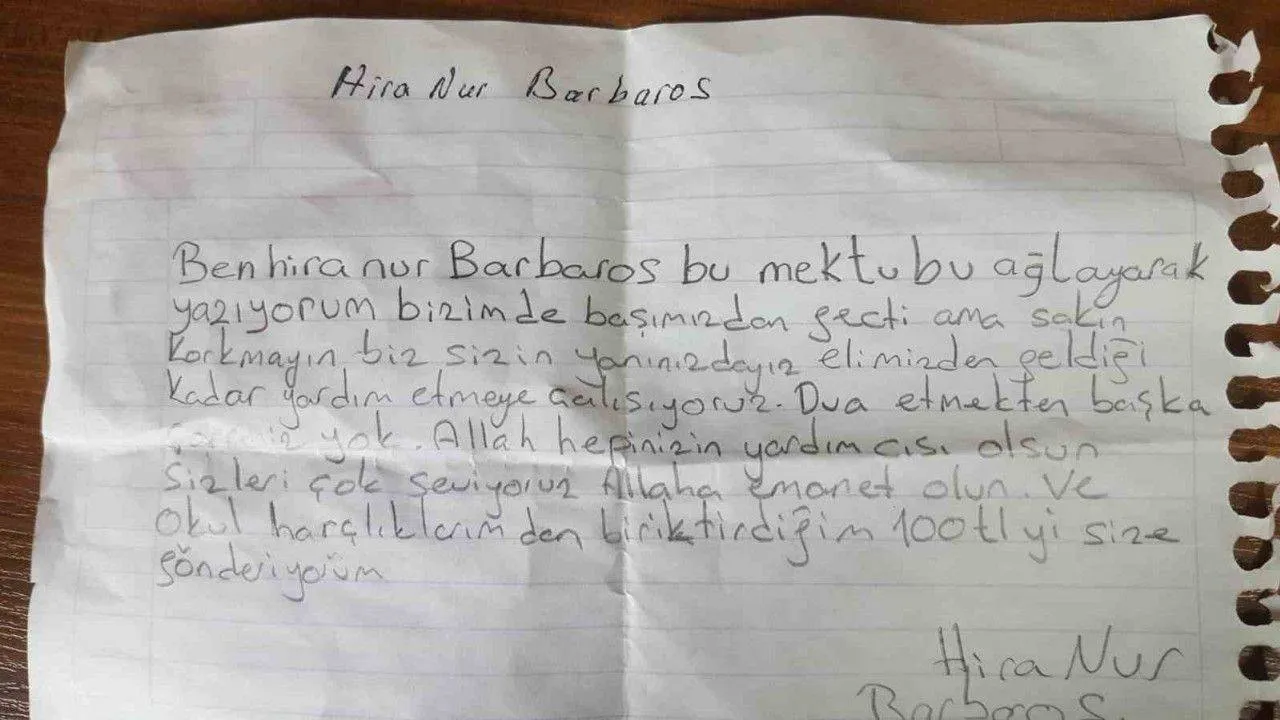 Hira Nur Barbaros
Ben hira nur Barbaros bu mektubu ağlayarak
yazıyorum bizimde başımızdan geçti ama sakın
korkmayın biz sizin yanınızdayız elimizden geldiği
kadar yardım etmeye çalışıyoruz. Dua etmekten başka
yok. Allah hepinizin yardımcısı olsun
Sizleri çok seviyoruz Allaha emanet olun. Ve
Okul harçlıklarımdan biriktirdiğim 100tlyi size
gönderiyorum
Hira Nur
Barbaros